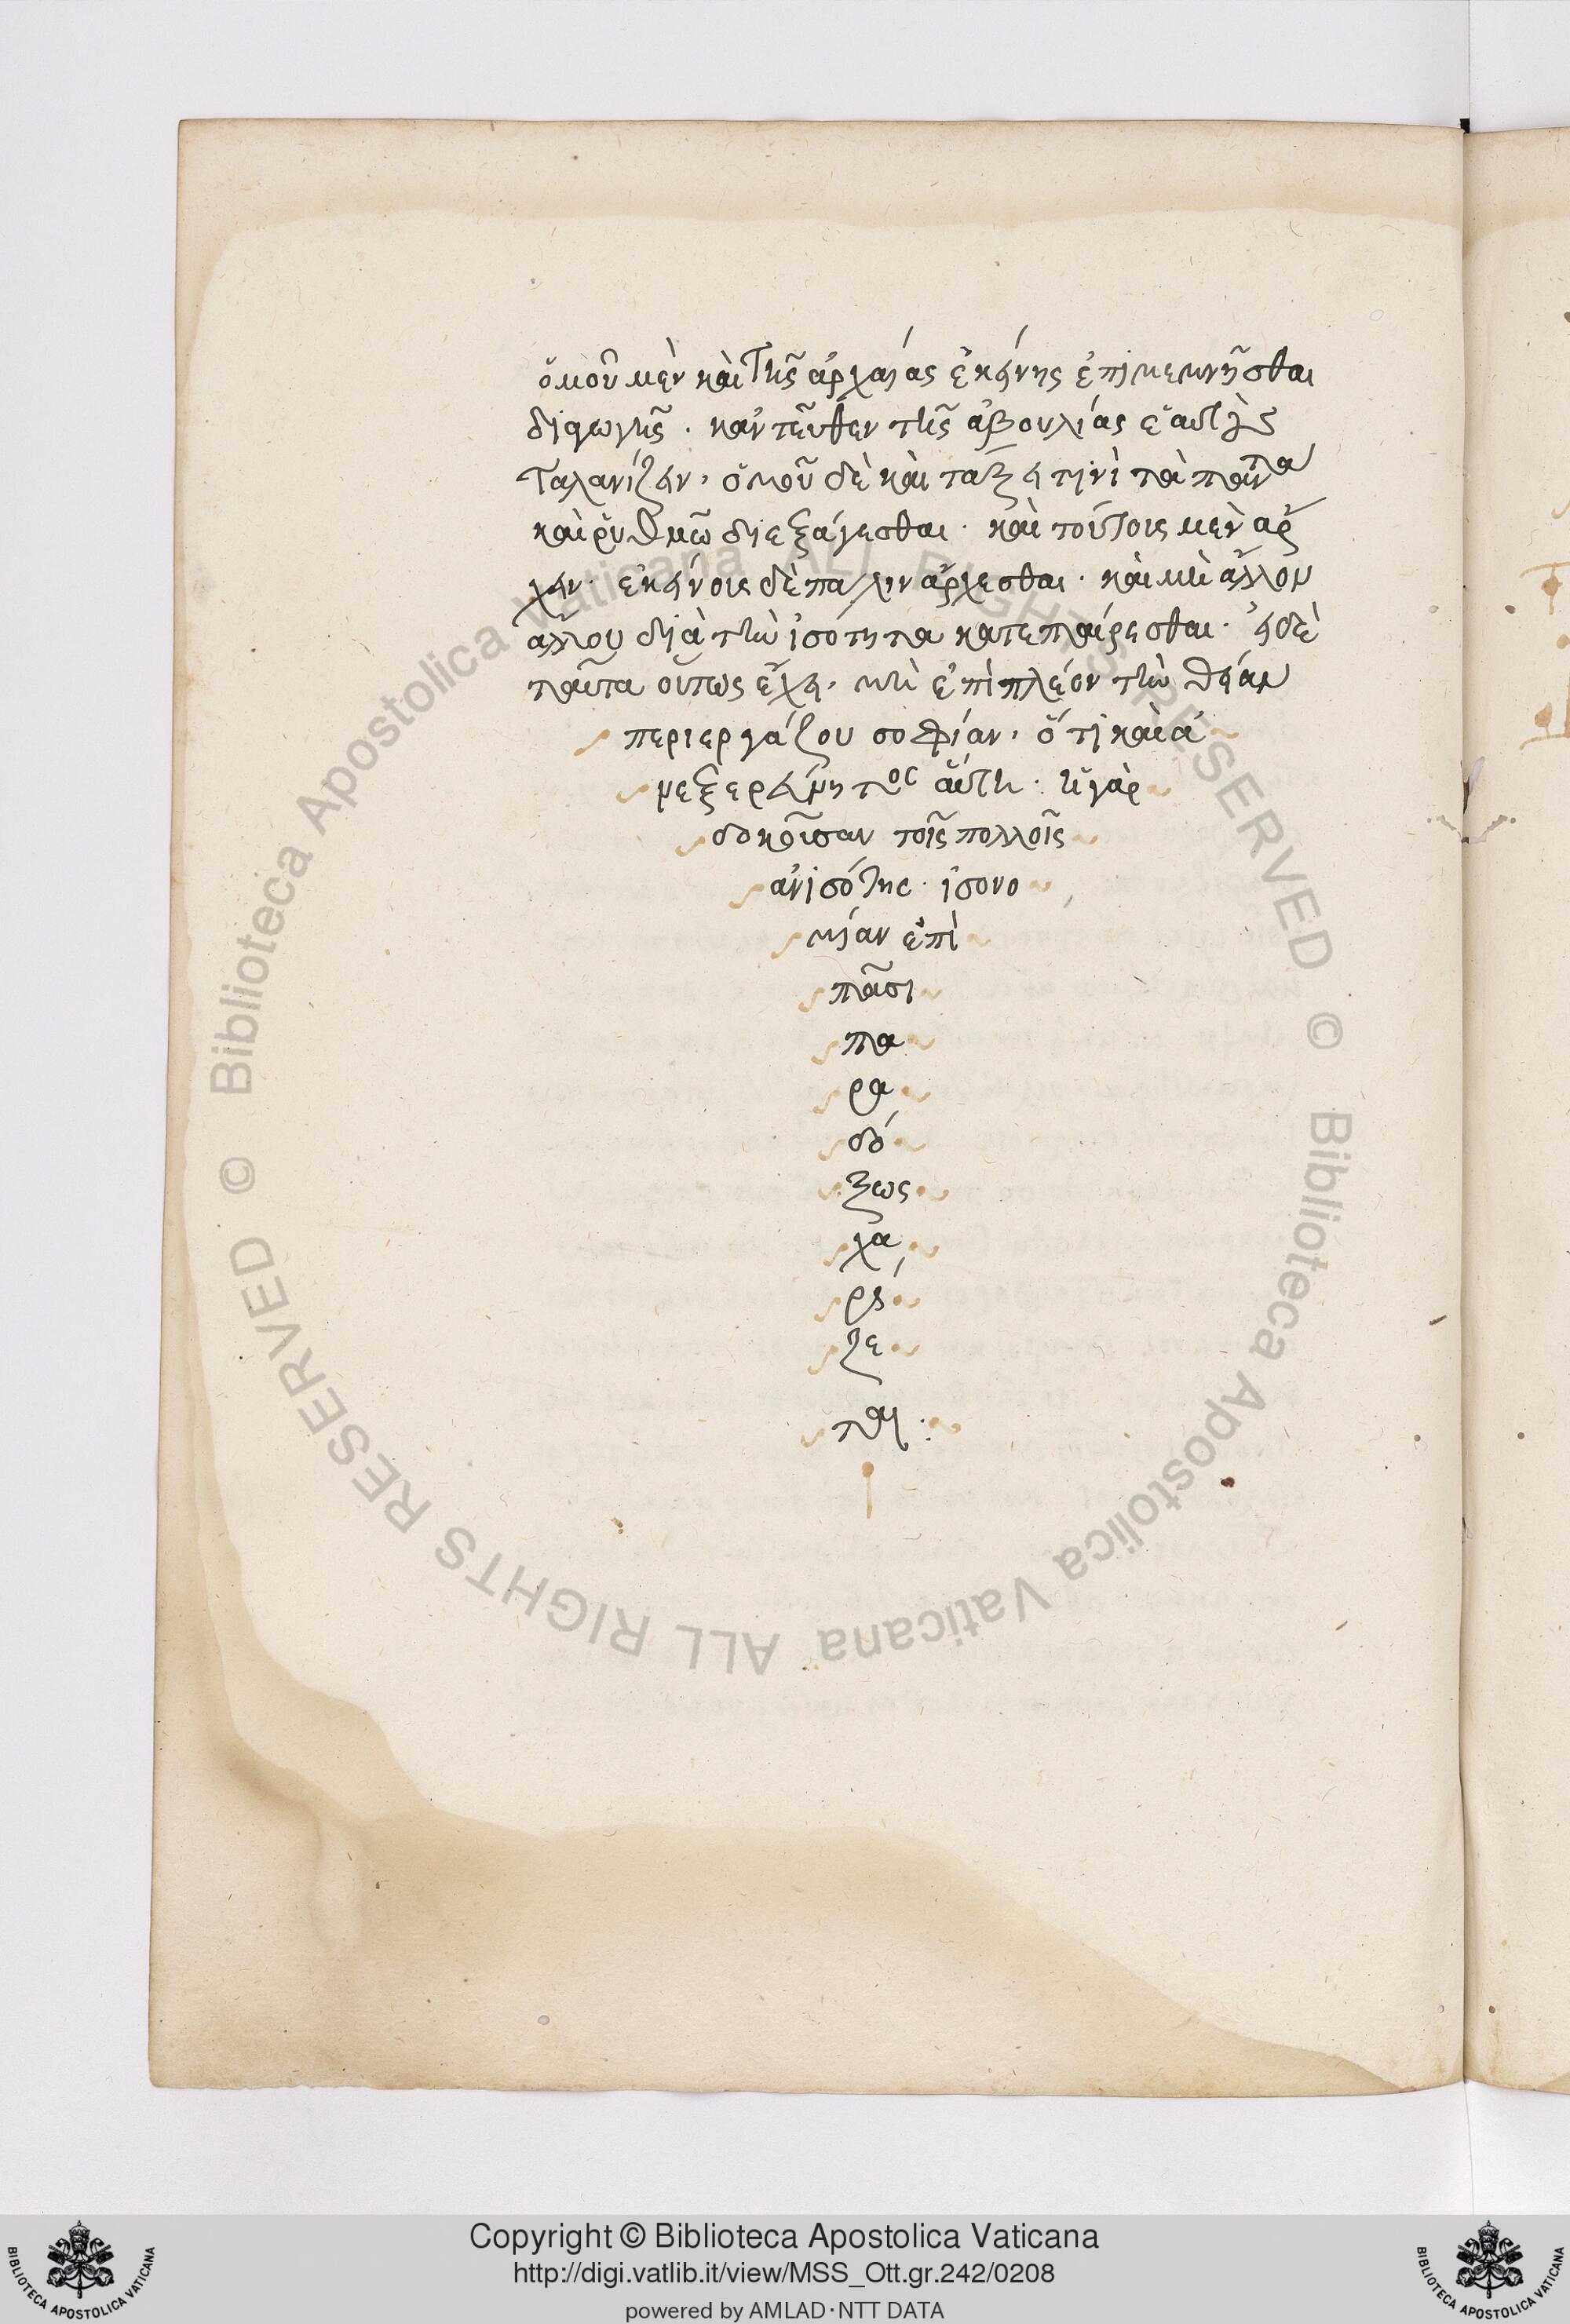 ὁμοῦ μὲν καὶ τῆς ἀρχαίας ἐκείνης ἐπιμεμνῆσθαι
διαγωγῆς. κἀντεῦθεν τῆς ἀβουλίας ἑαυτοὺς
ταλανίζειν, ὁμοῦ δὲ καὶ τάξει τινὶ τὰ πάντα
καὶ ῥυθμῶ διεξάγεσθαι. καὶ τούτοις μὲν ἄρ
χειν. ἐκείνοις δὲ πάλιν ἄρχεσθαι. καὶ μὴ ἄλλον
ἄλλου διὰ τὴν ἰσότητα κατεπαίρεσθαι. εἰ δὲ
ταῦτα οὕτως ἔχει, μὴ ἐπὶ πλέον τὴν θείαν
περιεργάζου σοφίαν, ὅτι καὶ ἀ
νεξερεύνητος αὕτη. ἡ γὰρ
δοκοῦσαν τοῖς πολλοῖς
ἀνισότης. ἰσονο
μίαν ἐπὶ
πᾶσι
πα
ρα
δό
ξως
χα
ρί
ζε
ται:
Copyright © Biblioteca Apostolica Vaticana
http://digi.vatlib.it/view/MSS_Ott.gr.242/0208
powered by AMLAD·NTT DATA
BIBLIOTECA APOSTOLICA VATICANA
BIBLIOTECA APOSTOLICA VATICANA
© Biblioteca Apostolica Vaticana ALL RIGHTS RESERVED
© Biblioteca Apostolica Vaticana ALL RIGHTS RESERVED